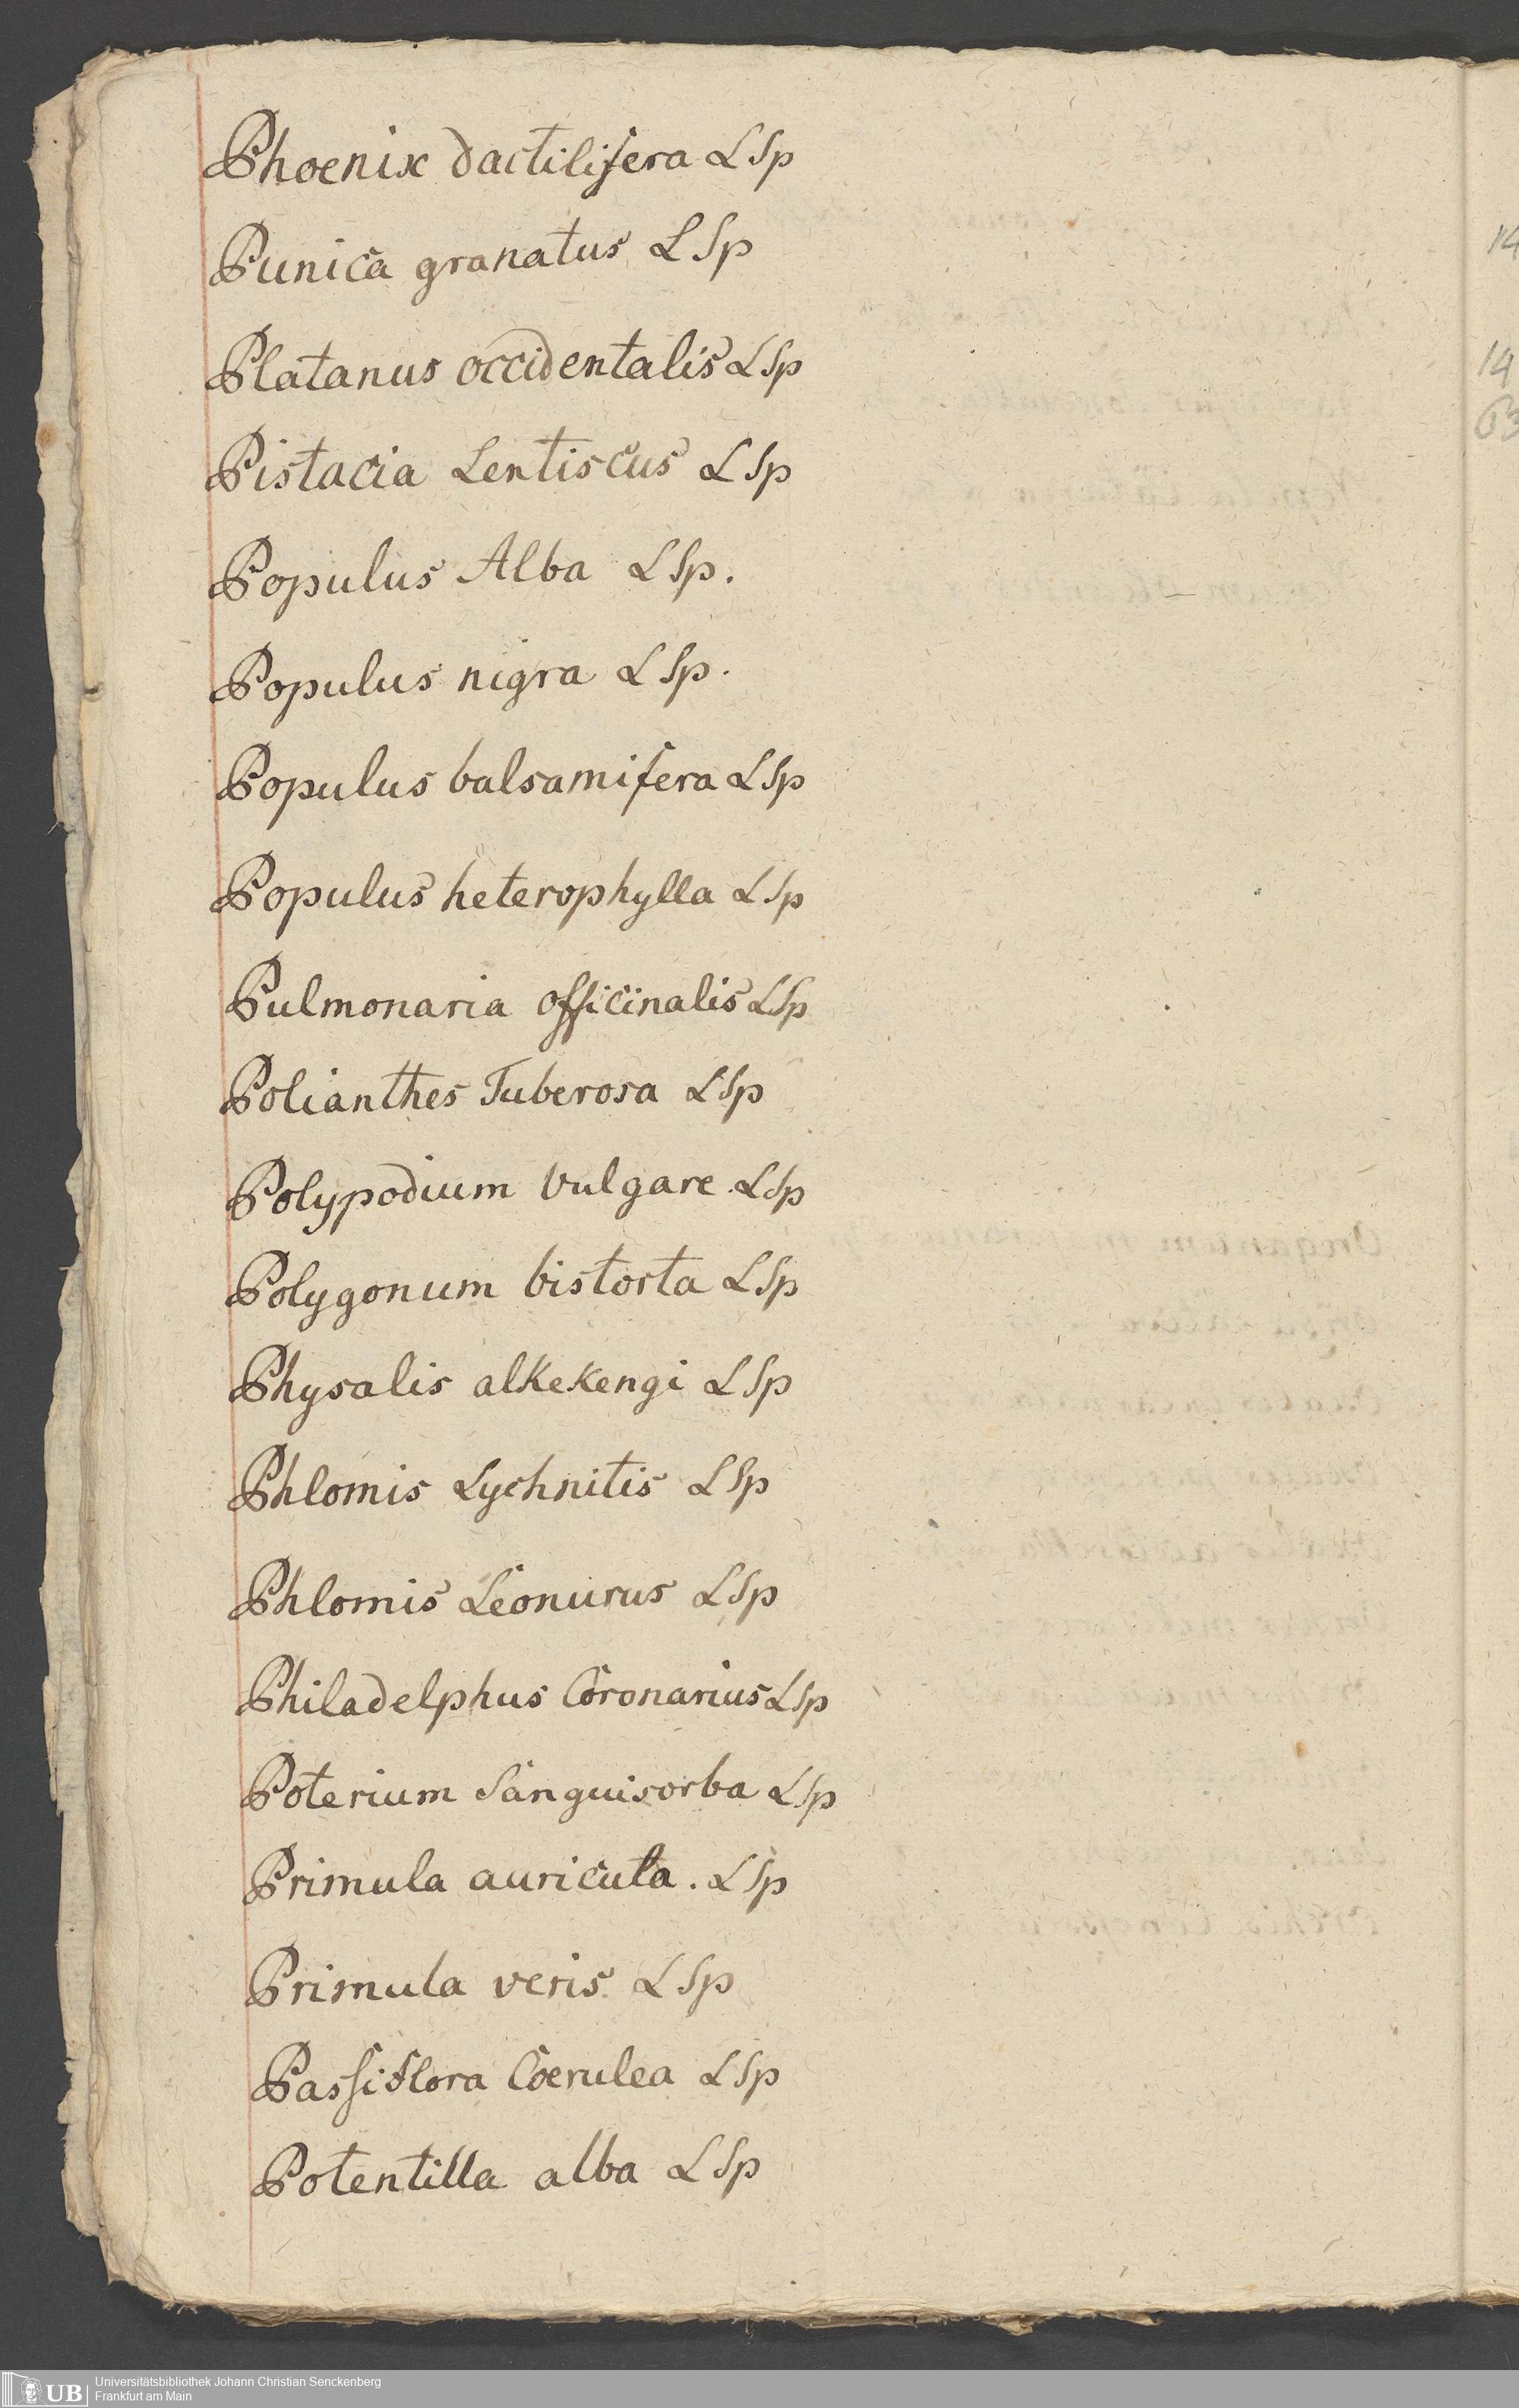 Phoenix dactilifera L Sp
Punica granatus L Sp
Platanus occidentalis L Sp
Pistacia Lentiscus L Sp
Populus Alba L Sp.
Populus nigra L Sp.
Populus balsamifera L Sp
Populus heterophylla L Sp
Pulmonaria officinalis L Sp
Polianthes Tuberosa L Sp
Polypodium vulgare L Sp
Polygonum bistorta L Sp
Physalis alkekengi L Sp
Phlomis Lychnitis L Sp
Phlomis Leonurus L Sp
Philadelphus Coronarius L Sp
Poterium Sanguisorba L Sp
Primula auricula. L Sp
Primula veris L Sp
Passiflora Coerulea L Sp
Potentilla alba L Sp
14
14
UB
Universitätsbibliothek Johann Christian Senckenberg
Frankfurt am Main